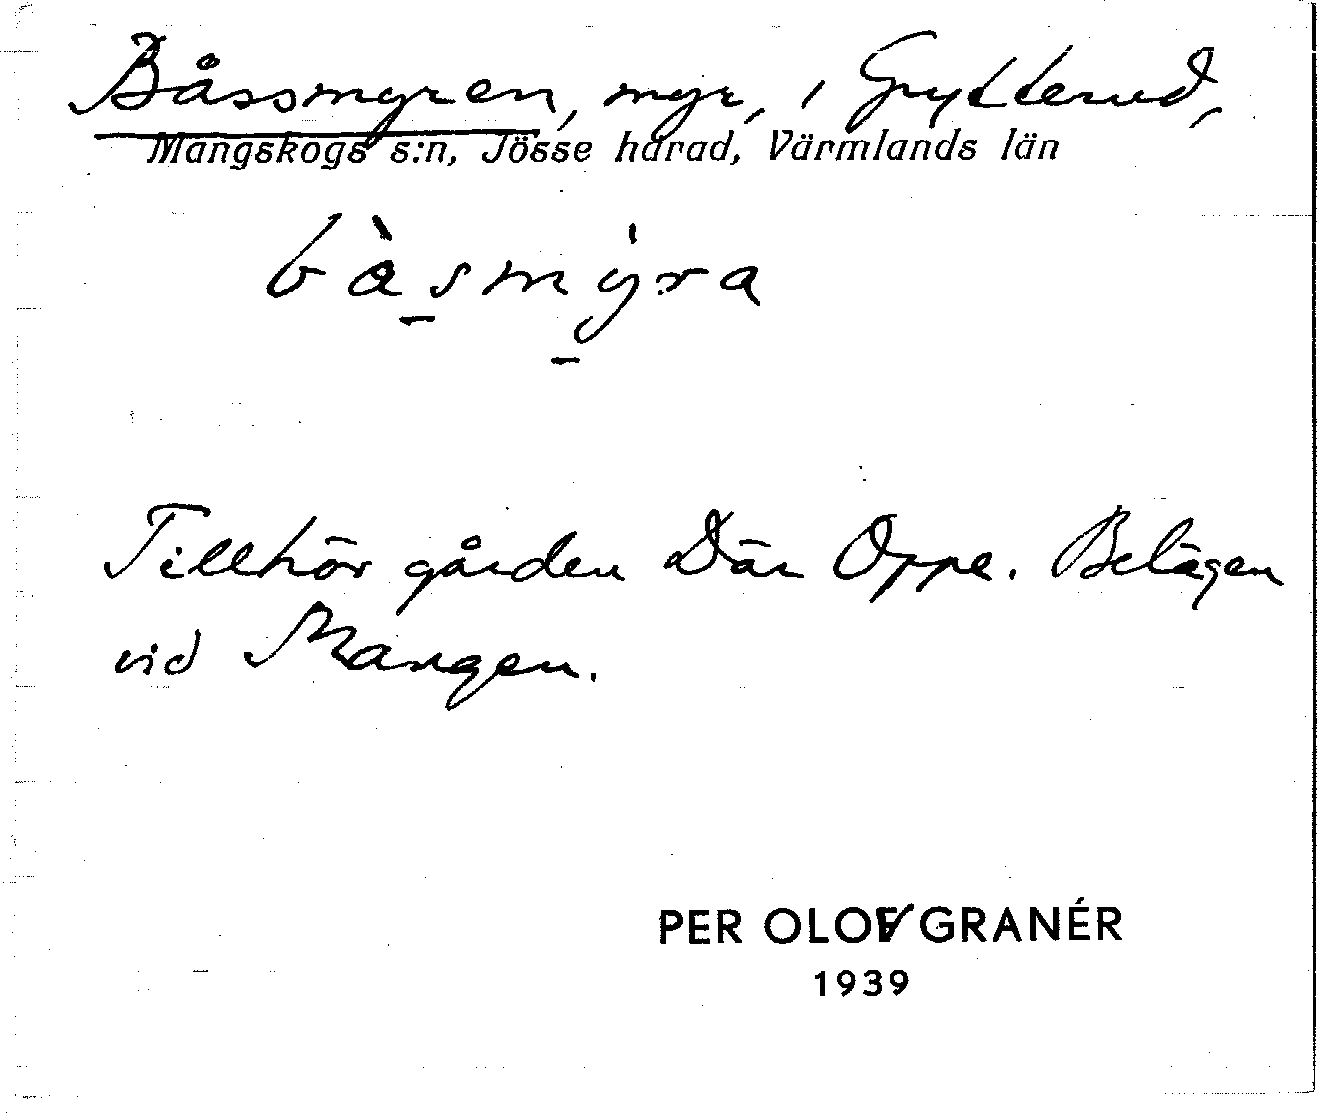 Båssmyren, myr, i Grytterud,
Mangskogs s:n, Jösse härad, Värmlands län
bàsmy̍ra
Tillhör gården Där Oppe. Belägen
vid Mangen.
PER OLOV GRANÉR
1939